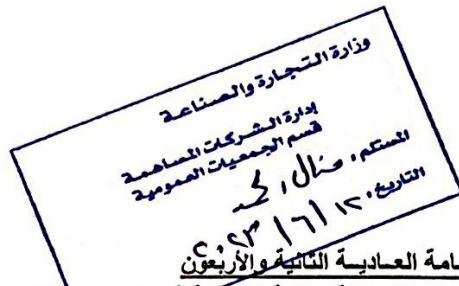 وزارة التجارة والصناعة
إدارة الشركات المساهمة
قسم الجمعيات العمومية
المستلم: منال
التاريخ: ١٢/٦/٢٠٢٣
امة العادية الثانية والأربعون